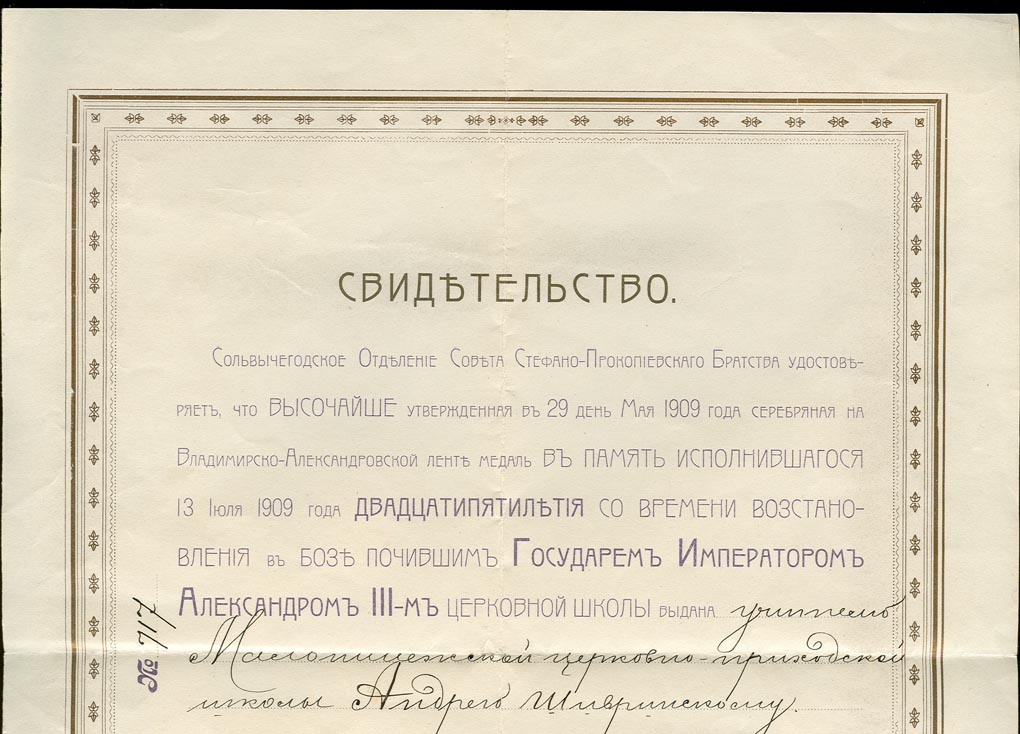 СВИДѢТЕЛЬСТВО.
Сольвычегодское Отдѣленіе Совѣта Стефано-Прокопіевскаго Братства удостовѣ-
ряетъ, что ВЫСОЧАЙШЕ утвержденная въ 29 день Мая 1909 года серебряная на
Владимирско-Александровской лентѣ медаль ВЪ ПАМЯТЬ ИСПОЛНИВШАГОСЯ
13 Іюля 1909 года ДВАДЦАТИПЯТИЛѢТІЯ СО ВРЕМЕНИ ВОЗСТАНО-
ВЛЕНІЯ въ БОЗѢ ПОЧИВШИМЪ Государемъ Императоромъ
Александромъ III-мъ ЦЕРКОВНОЙ ШКОЛЫ выдана учителю
церковно-приходской
школы Андрею Шивринскому.
№ 117